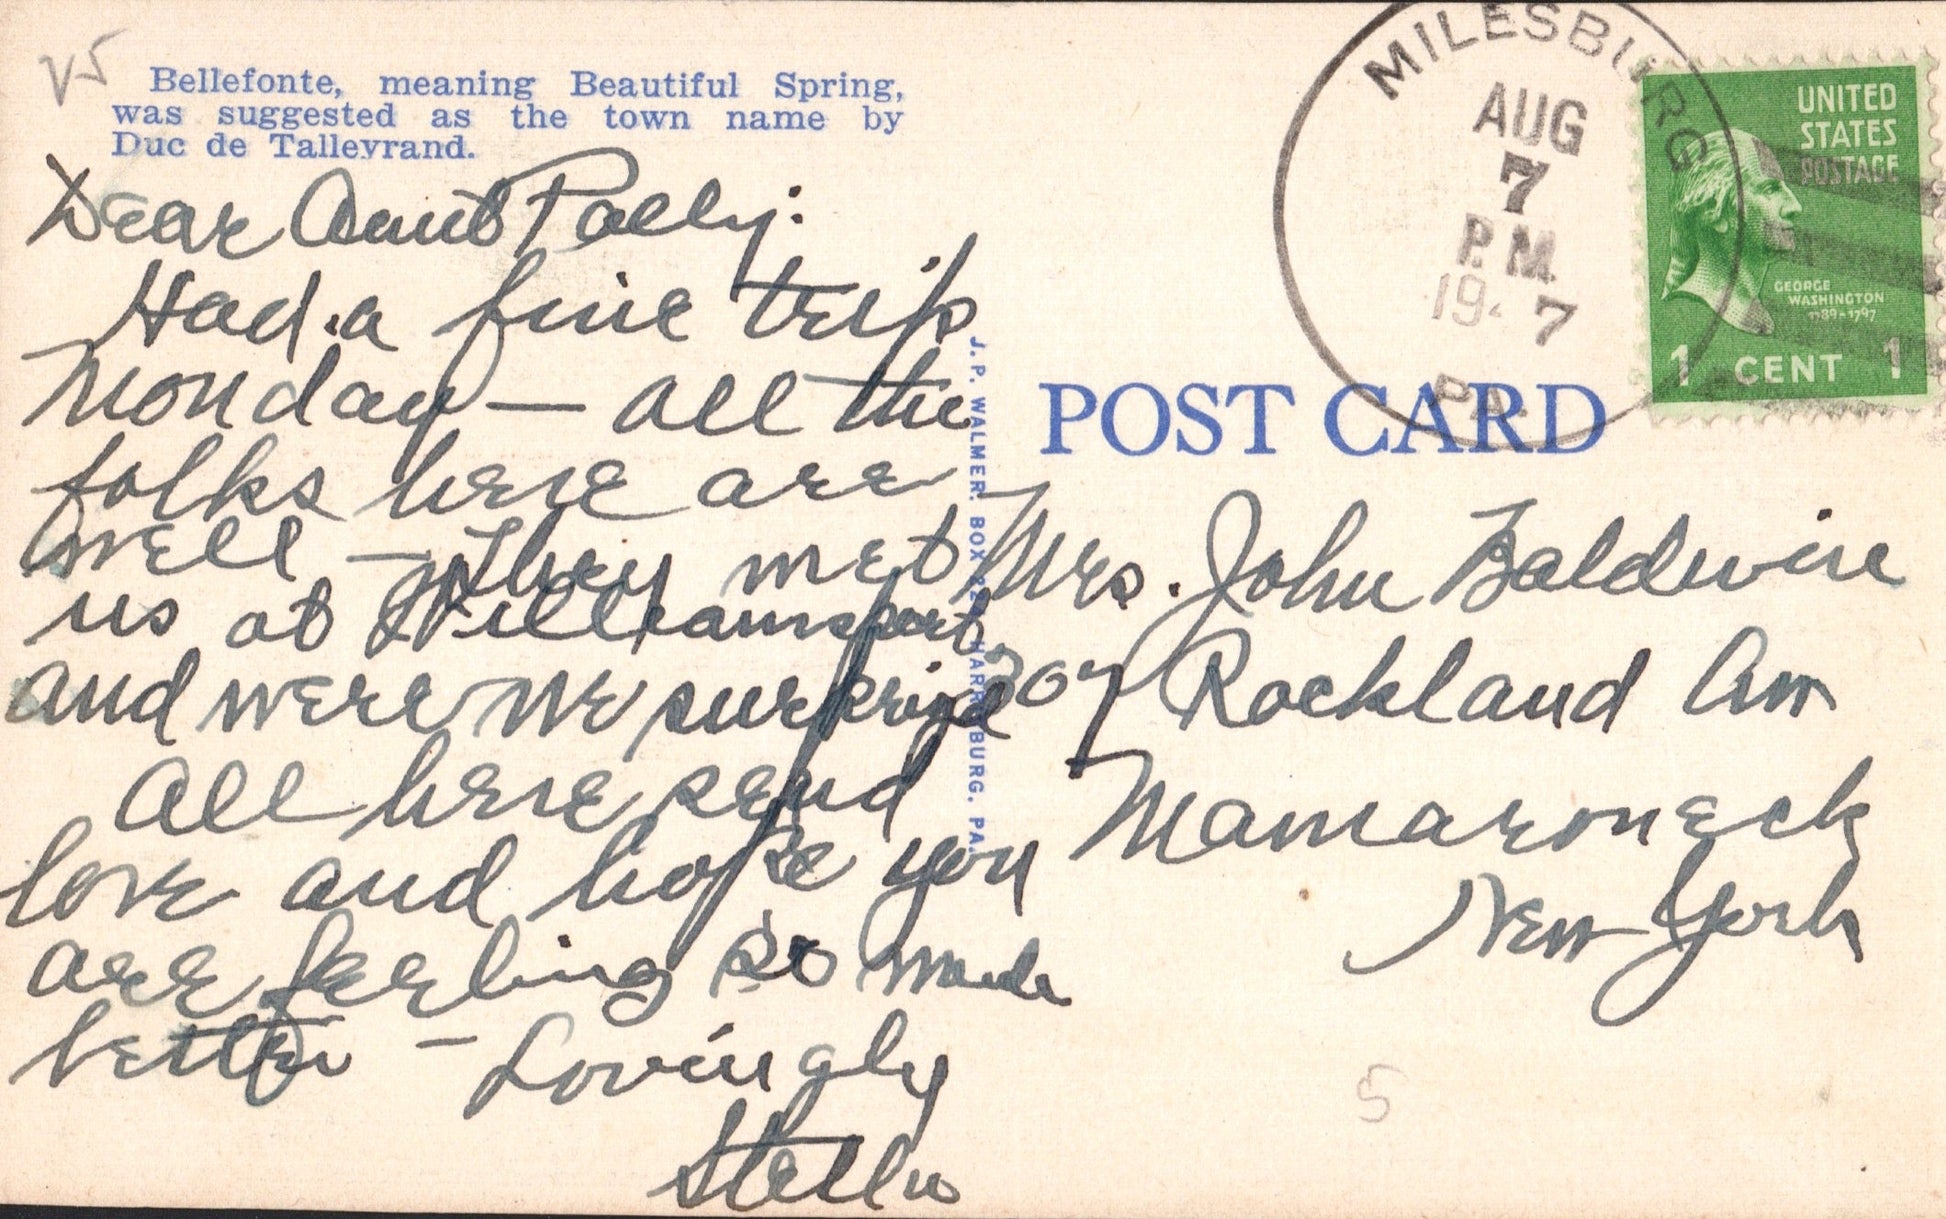 V5
Bellefonte, meaning Beautiful Spring,
was suggested as the town name by
Duc de Talleyrand.
Dear Aunt Polly:
Had a fine trip
Monday — all the
folks here are
well — They met
us at Williamsport
and were we surprised
All here send
love and hope you
are feeling so much
better — Lovingly
Stella
J. P. WALMER, BOX 22 HARRISBURG, PA.
POST CARD
MILESBURG
AUG
7
P.M.
194 7
PA.
UNITED
STATES
POSTAGE
GEORGE
WASHINGTON
1789-1797
1 CENT 1
Mrs. John Baldwin
207 Rockland Ave
Mamaroneck
New York
5